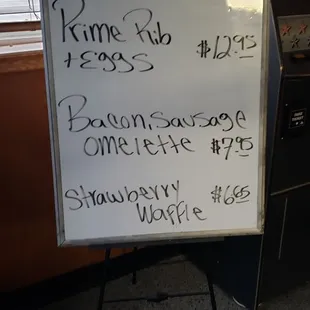 Prime Rib
+ Eggs $12.95
Bacon, Sausage
Omelette $7.95
Strawberry $6.95
Waffle